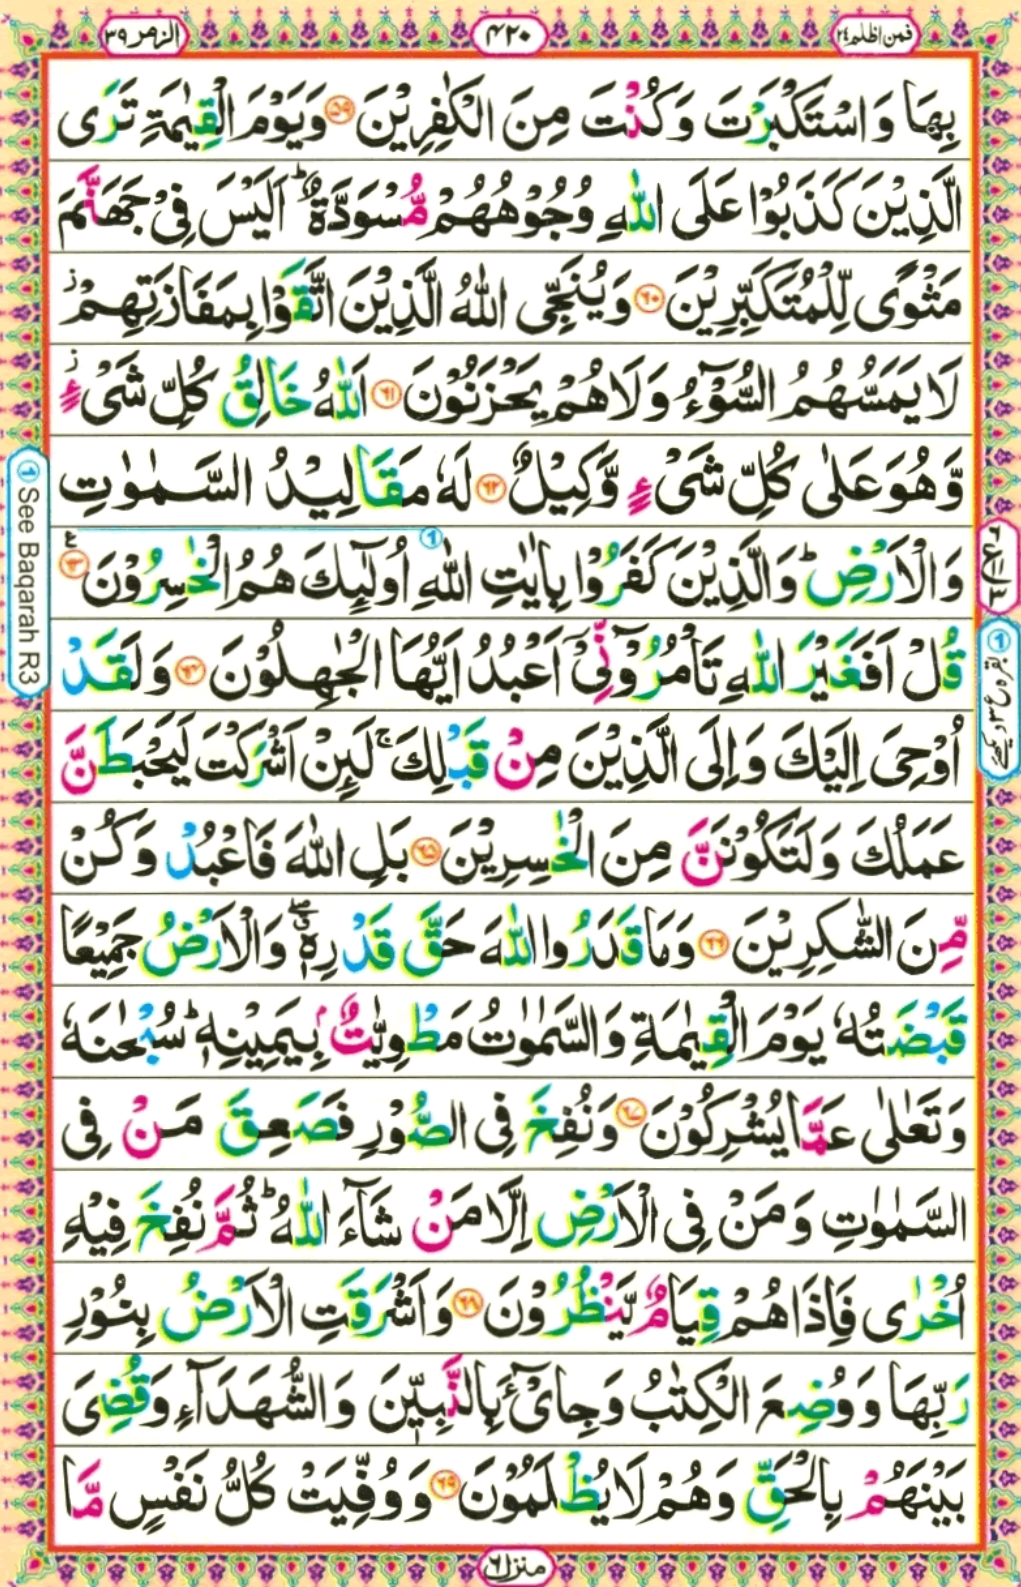 فمن اظلم ٢٤
۴۲۰
الزمر ۳۹
بِهَا وَاسْتَكْبَرْتَ وَكُنْتَ مِنَ الْكٰفِرِيْنَ ۵۹ وَيَوْمَ الْقِيٰمَةِ تَرَى
الَّذِيْنَ كَذَبُوْا عَلَى اللّٰهِ وُجُوْهُهُمْ مُّسْوَدَّةٌ ؕ اَلَيْسَ فِيْ جَهَنَّمَ
مَثْوًى لِّلْمُتَكَبِّرِيْنَ ۶۰ وَيُنَجِّى اللّٰهُ الَّذِيْنَ اتَّقَوْا بِمَفَازَتِهِمْ ز
لَا يَمَسُّهُمُ السُّوْٓءُ وَلَا هُمْ يَحْزَنُوْنَ ۶۱ اَللّٰهُ خَالِقُ كُلِّ شَىْءٍ ز
وَّهُوَ عَلٰى كُلِّ شَىْءٍ وَّكِيْلٌ ۶۲ لَهٗ مَقَالِيْدُ السَّمٰوٰتِ
وَالْاَرْضِ ؕ وَالَّذِيْنَ كَفَرُوْا بِاٰيٰتِ اللّٰهِ اُولٰٓئِكَ هُمُ الْخٰسِرُوْنَ ۶۳
قُلْ اَفَغَيْرَ اللّٰهِ تَاْمُرُوْٓنِّيْٓ اَعْبُدُ اَيُّهَا الْجٰهِلُوْنَ ۶۴ وَلَقَدْ
اُوْحِىَ اِلَيْكَ وَاِلَى الَّذِيْنَ مِنْ قَبْلِكَ ۚ لَئِنْ اَشْرَكْتَ لَيَحْبَطَنَّ
عَمَلُكَ وَلَتَكُوْنَنَّ مِنَ الْخٰسِرِيْنَ ۶۵ بَلِ اللّٰهَ فَاعْبُدْ وَكُنْ
مِّنَ الشّٰكِرِيْنَ ۶۶ وَمَا قَدَرُوا اللّٰهَ حَقَّ قَدْرِهٖ ۖ وَالْاَرْضُ جَمِيْعًا
قَبْضَتُهٗ يَوْمَ الْقِيٰمَةِ وَالسَّمٰوٰتُ مَطْوِيّٰتٌۢ بِيَمِيْنِهٖ ؕ سُبْحٰنَهٗ
وَتَعٰلٰى عَمَّا يُشْرِكُوْنَ ۶۷ وَنُفِخَ فِى الصُّوْرِ فَصَعِقَ مَنْ فِى
السَّمٰوٰتِ وَمَنْ فِى الْاَرْضِ اِلَّا مَنْ شَآءَ اللّٰهُ ؕ ثُمَّ نُفِخَ فِيْهِ
اُخْرٰى فَاِذَا هُمْ قِيَامٌ يَّنْظُرُوْنَ ۶۸ وَاَشْرَقَتِ الْاَرْضُ بِنُوْرِ
رَبِّهَا وَوُضِعَ الْكِتٰبُ وَجِاىْٓءَ بِالنَّبِيّٖنَ وَالشُّهَدَآءِ وَقُضِىَ
بَيْنَهُمْ بِالْحَقِّ وَهُمْ لَا يُظْلَمُوْنَ ۶۹ وَوُفِّيَتْ كُلُّ نَفْسٍ مَّا
منزل ۶
① See Baqarah R3